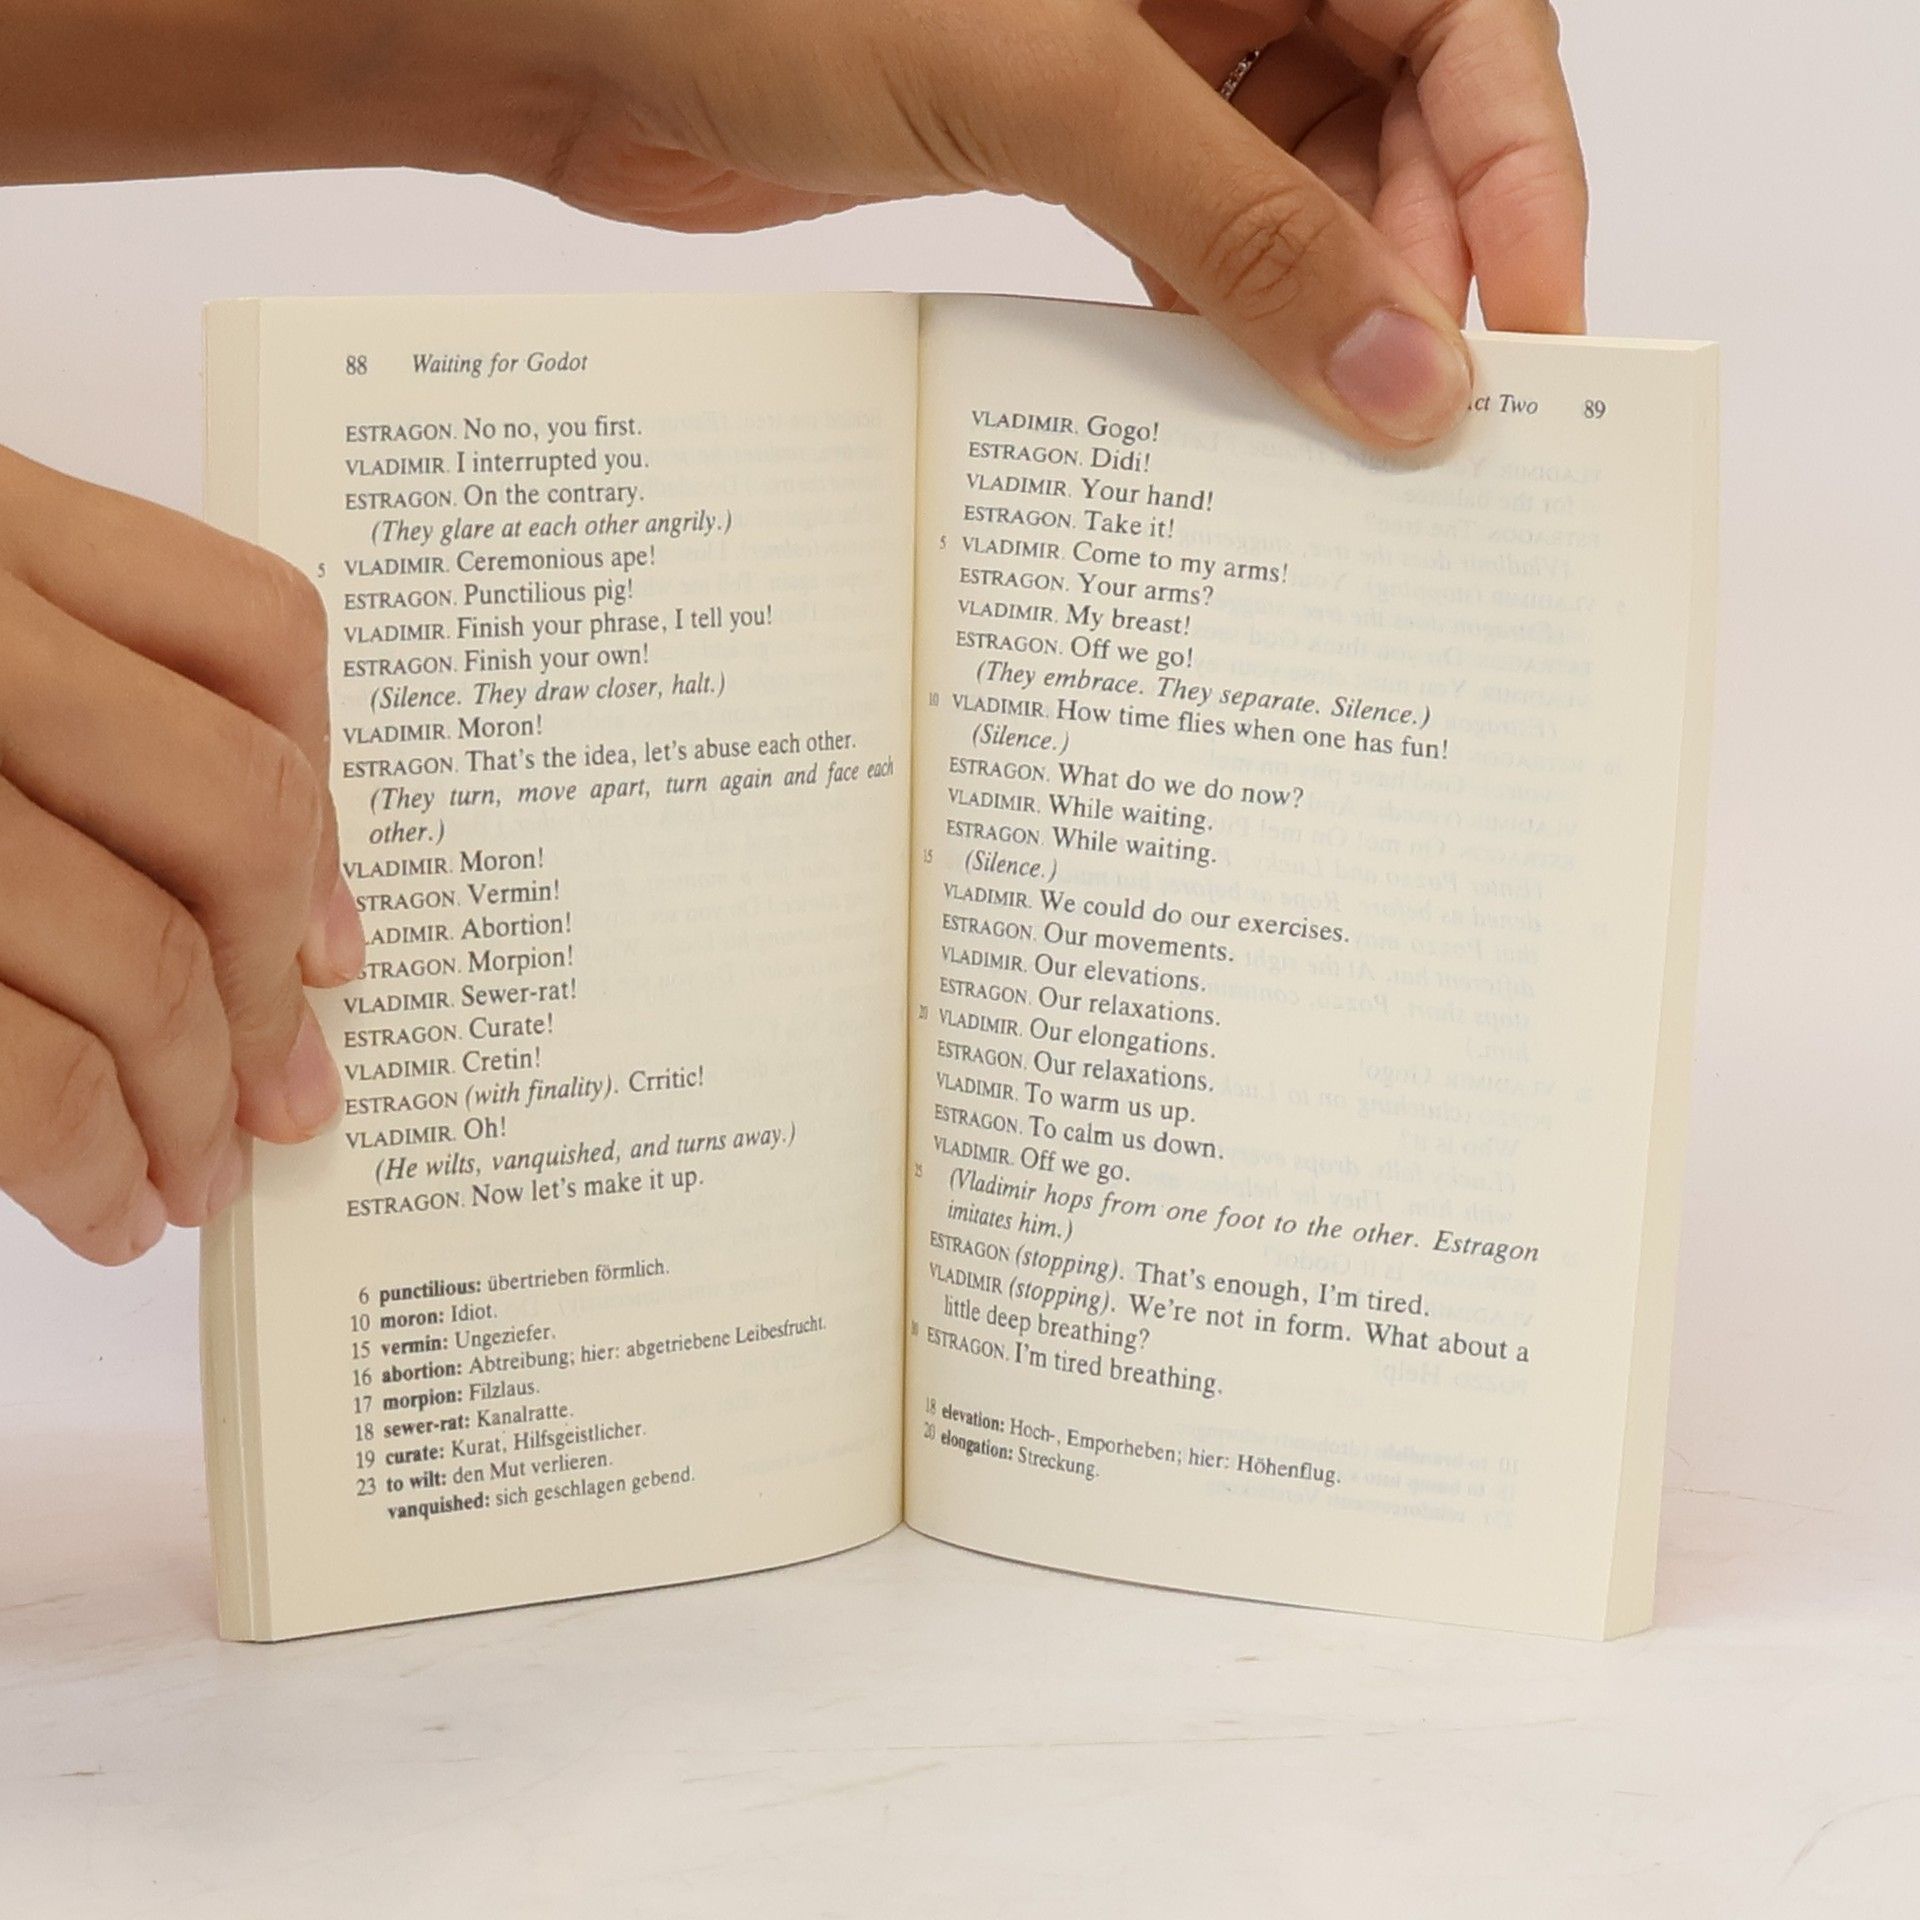 88 Waiting for Godot
ESTRAGON. No no, you first.
VLADIMIR. I interrupted you.
ESTRAGON. On the contrary.
(They glare at each other angrily.)
5 VLADIMIR. Ceremonious ape!
ESTRAGON. Punctilious pig!
VLADIMIR. Finish your phrase, I tell you!
ESTRAGON. Finish your own!
(Silence. They draw closer, halt.)
VLADIMIR. Moron!
ESTRAGON. That's the idea, let's abuse each other.
(They turn, move apart, turn again and face each
other.)
VLADIMIR. Moron!
STRAGON. Vermin!
LADIMIR. Abortion!
STRAGON. Morpion!
VLADIMIR. Sewer-rat!
ESTRAGON. Curate!
VLADIMIR. Cretin!
ESTRAGON (with finality). Crritic!
VLADIMIR. Oh!
(He wilts, vanquished, and turns away.)
ESTRAGON. Now let's make it up.
6 punctilious: übertrieben förmlich.
10 moron: Idiot.
15 vermin: Ungeziefer.
16 abortion: Abtreibung; hier: abgetriebene Leibesfrucht.
17 morpion: Filzlaus.
18 sewer-rat: Kanalratte.
19 curate: Kurat, Hilfsgeistlicher.
23 to wilt: den Mut verlieren.
vanquished: sich geschlagen gebend.
ct Two 89
VLADIMIR. Gogo!
ESTRAGON. Didi!
VLADIMIR. Your hand!
ESTRAGON. Take it!
5 VLADIMIR. Come to my arms!
ESTRAGON. Your arms?
VLADIMIR. My breast!
ESTRAGON. Off we go!
(They embrace. They separate. Silence.)
10 VLADIMIR. How time flies when one has fun!
(Silence.)
ESTRAGON. What do we do now?
VLADIMIR. While waiting.
ESTRAGON. While waiting.
15 (Silence.)
VLADIMIR. We could do our exercises.
ESTRAGON. Our movements.
VLADIMIR. Our elevations.
ESTRAGON. Our relaxations.
20 VLADIMIR. Our elongations.
ESTRAGON. Our relaxations.
VLADIMIR. To warm us up.
ESTRAGON. To calm us down.
VLADIMIR. Off we go.
25 (Vladimir hops from one foot to the other. Estragon
imitates him.)
ESTRAGON (stopping). That's enough, I'm tired.
VLADIMIR (stopping). We're not in form. What about a
little deep breathing?
30 ESTRAGON. I'm tired breathing.
18 elevation: Hoch-, Emporheben; hier: Höhenflug.
20 elongation: Streckung.